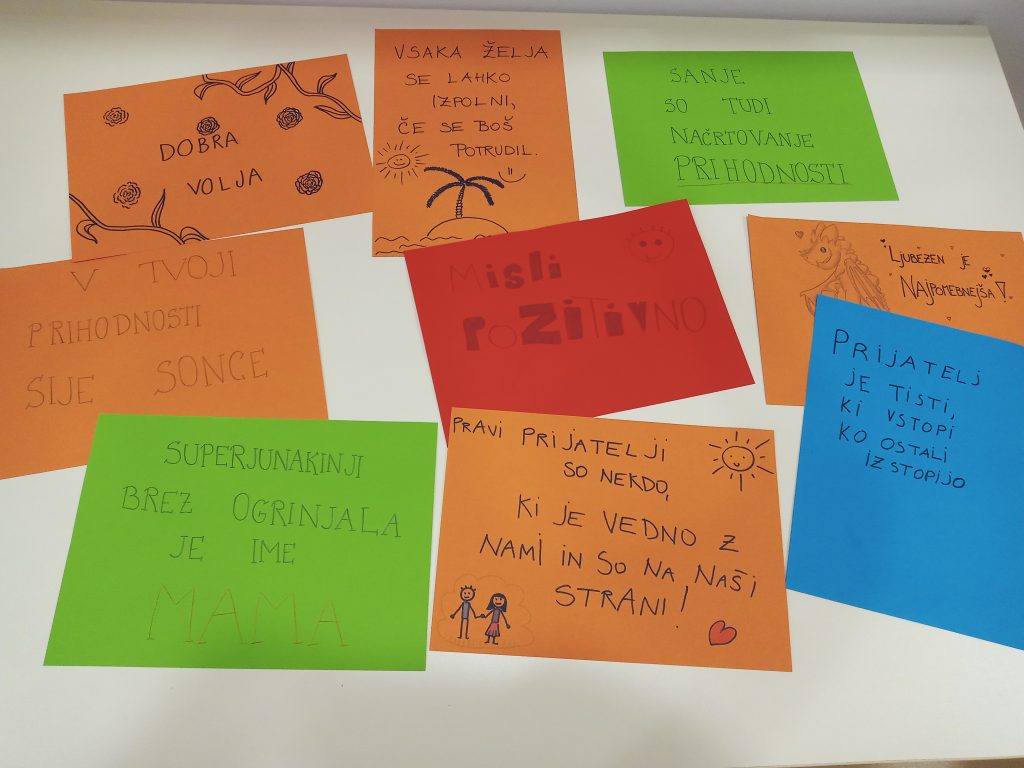 DOBRA
VOLJA
VSAKA ŽELJA
SE LAHKO
IZPOLNI,
ČE SE BOŠ
POTRUDIL.
SANJE
SO TUDI
NAČRTOVANJE
PRIHODNOSTI
V TVOJI
PRIHODNOSTI
SIJE SONCE
Misli
POZITIVNO
LJUBEZEN JE
NAJPOMEBNEJŠA!
PRIJATELJ
JE TISTI,
KI VSTOPI
KO OSTALI
IZSTOPIJO
SUPERJUNAKINJI
BREZ OGRINJALA
JE IME
MAMA
PRAVI PRIJATELJI
SO NEKDO,
KI JE VEDNO Z
NAMI IN SO NA NAŠI
STRANI!